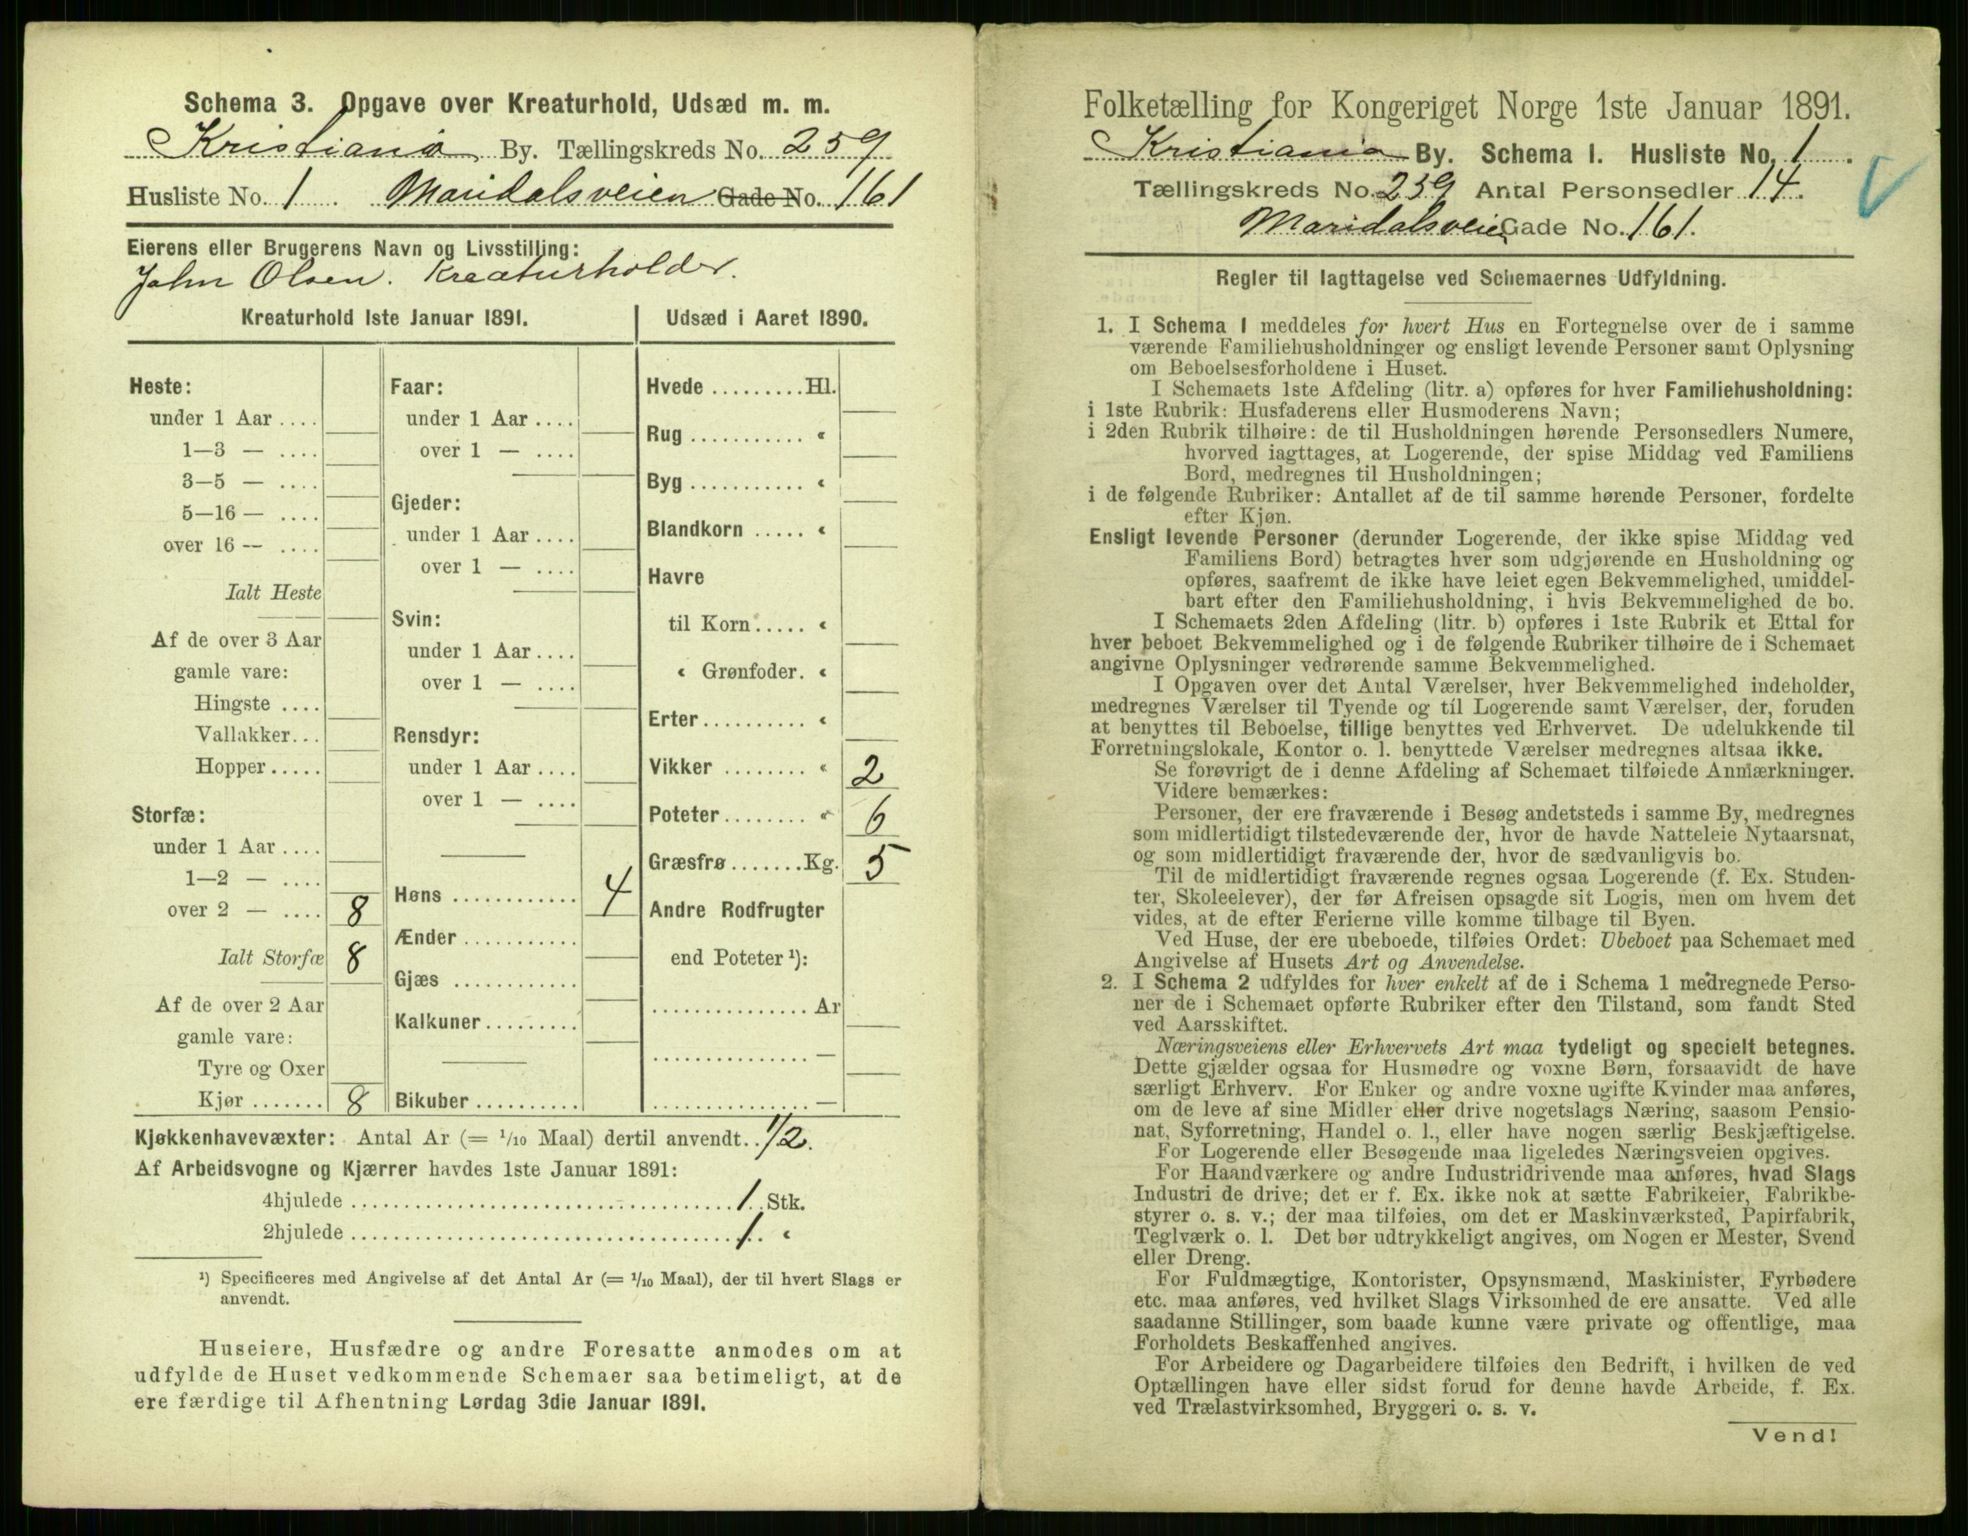 Schema 3. Opgave over Kreaturhold, Udsæd m. m.
Kristiania By. Tællingskreds No. 259
Husliste No. 1. Maridalsveien Gade No. 161
Eierens eller Brugerens Navn og Livsstilling:
John Olsen. Kreaturholder.
Kreaturhold 1ste Januar 1891.
Heste:
under 1 Aar ....
1—3 — ....
3—5 — ....
5—16 — ....
over 16 — ....
Ialt Heste
Af de over 3 Aar
gamle vare:
Hingste ....
Vallakker...
Hopper.....
Storfæ:
under 1 Aar ....
1—2 — ....
over 2 — .... 8
Ialt Storfæ 8
Af de over 2 Aar
gamle vare:
Tyre og Oxer
Kjør ....... 8
Faar:
under 1 Aar ....
over 1 — ....
Gjeder:
under 1 Aar ....
over 1 — ....
Svin:
under 1 Aar ....
over 1 — ....
Rensdyr:
under 1 Aar ....
over 1 — ....
Høns ............ 4
Ænder ...........
Gjæs ............
Kalkuner.........
Bikuber ..........
Udsæd i Aaret 1890.
Hvede .........Hl.
Rug ........... «
Byg ........... «
Blandkorn ..... «
Havre
til Korn ..... «
« Grønfoder. «
Erter.......... «
Vikker ........ « 2
Poteter........ « 6
Græsfrø.......Kg. 5
Andre Rodfrugter
end Poteter ¹):
...............Ar
...............—
...............—
Kjøkkenhavevæxter: Antal Ar (= 1/10 Maal) dertil anvendt.. 1/2.
Af Arbeidsvogne og Kjærrer havdes 1ste Januar 1891:
4hjulede .................................... 1 Stk.
2hjulede .................................... 1 «
¹) Specificeres med Angivelse af det Antal Ar (= 1/10 Maal), der til hvert Slags er
anvendt.
Huseiere, Husfædre og andre Foresatte anmodes om at
udfylde de Huset vedkommende Schemaer saa betimeligt, at de
ere færdige til Afhentning Lørdag 3die Januar 1891.
Folketælling for Kongeriget Norge 1ste Januar 1891.
Kristiania By. Schema 1. Husliste No. 1.
Tællingskreds No. 259 Antal Personsedler 14.
Maridalsveien Gade No. 161.
Regler til Iagttagelse ved Schemaernes Udfyldning.
1. I Schema 1 meddeles for hvert Hus en Fortegnelse over de i samme
værende Familiehusholdninger og ensligt levende Personer samt Oplysning
om Beboelsesforholdene i Huset.
I Schemaets 1ste Afdeling (litr. a) opføres for hver Familiehusholdning:
i 1ste Rubrik: Husfaderens eller Husmoderens Navn;
i 2den Rubrik tilhøire: de til Husholdningen hørende Personsedlers Numere,
hvorved iagttages, at Logerende, der spise Middag ved Familiens
Bord, medregnes til Husholdningen;
i de følgende Rubriker: Antallet af de til samme hørende Personer, fordelte
efter Kjøn.
Ensligt levende Personer (derunder Logerende, der ikke spise Middag ved
Familiens Bord) betragtes hver som udgjørende en Husholdning og
opføres, saafremt de ikke have leiet egen Bekvemmelighed, umiddel-
bart efter den Familiehusholdning, i hvis Bekvemmelighed de bo.
I Schemaets 2den Afdeling (litr. b) opføres i 1ste Rubrik et Ettal for
hver beboet Bekvemmelighed og i de følgende Rubriker tilhøire de i Schemaet
angivne Oplysninger vedrørende samme Bekvemmelighed.
I Opgaven over det Antal Værelser, hver Bekvemmelighed indeholder,
medregnes Værelser til Tyende og til Logerende samt Værelser, der, foruden
at benyttes til Beboelse, tillige benyttes ved Erhvervet. De udelukkende til
Forretningslokale, Kontor o. l. benyttede Værelser medregnes altsaa ikke.
Se forøvrigt de i denne Afdeling af Schemaet tilføiede Anmærkninger.
Videre bemærkes:
Personer, der ere fraværende i Besøg andetsteds i samme By, medregnes
som midlertidigt tilstedeværende der, hvor de havde Natteleie Nytaarsnat,
og som midlertidigt fraværende der, hvor de sædvanligvis bo.
Til de midlertidigt fraværende regnes ogsaa Logerende (f. Ex. Studen-
ter, Skoleelever), der før Afreisen opsagde sit Logis, men om hvem det
vides, at de efter Ferierne ville komme tilbage til Byen.
Ved Huse, der ere ubeboede, tilføies Ordet: Ubeboet paa Schemaet med
Angivelse af Husets Art og Anvendelse.
2. I Schema 2 udfyldes for hver enkelt af de i Schema 1 medregnede Perso-
ner de i Schemaet opførte Rubriker efter den Tilstand, som fandt Sted
ved Aarsskiftet.
Næringsveiens eller Erhvervets Art maa tydeligt og specielt betegnes.
Dette gjælder ogsaa for Husmødre og voxne Børn, forsaavidt de have
særligt Erhverv. For Enker og andre voxne ugifte Kvinder maa anføres,
om de leve af sine Midler eller drive nogetslags Næring, saasom Pensio-
nat, Syforretning, Handel o. l., eller have nogen særlig Beskjæftigelse.
For Logerende eller Besøgende maa ligeledes Næringsveien opgives.
For Haandværkere og andre Industridrivende maa anføres, hvad Slags
Industri de drive; det er f. Ex. ikke nok at sætte Fabrikeier, Fabrikbe-
styrer o. s. v.; der maa tilføies, om det er Maskinværksted, Papirfabrik,
Teglværk o. l. Det bør udtrykkeligt angives, om Nogen er Mester, Svend
eller Dreng.
For Fuldmægtige, Kontorister, Opsynsmænd, Maskinister, Fyrbødere
etc. maa anføres, ved hvilket Slags Virksomhed de ere ansatte. Ved alle
saadanne Stillinger, som baade kunne være private og offentlige, maa
Forholdets Beskaffenhed angives.
For Arbeidere og Dagarbeidere tilføies den Bedrift, i hvilken de ved
Optællingen have eller sidst forud for denne havde Arbeide, f. Ex.
ved Trælastvirksomhed, Bryggeri o. s. v.
Vend!